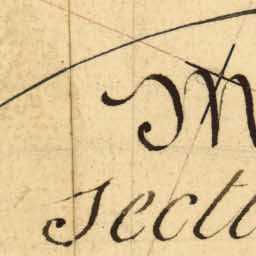 M
Secti